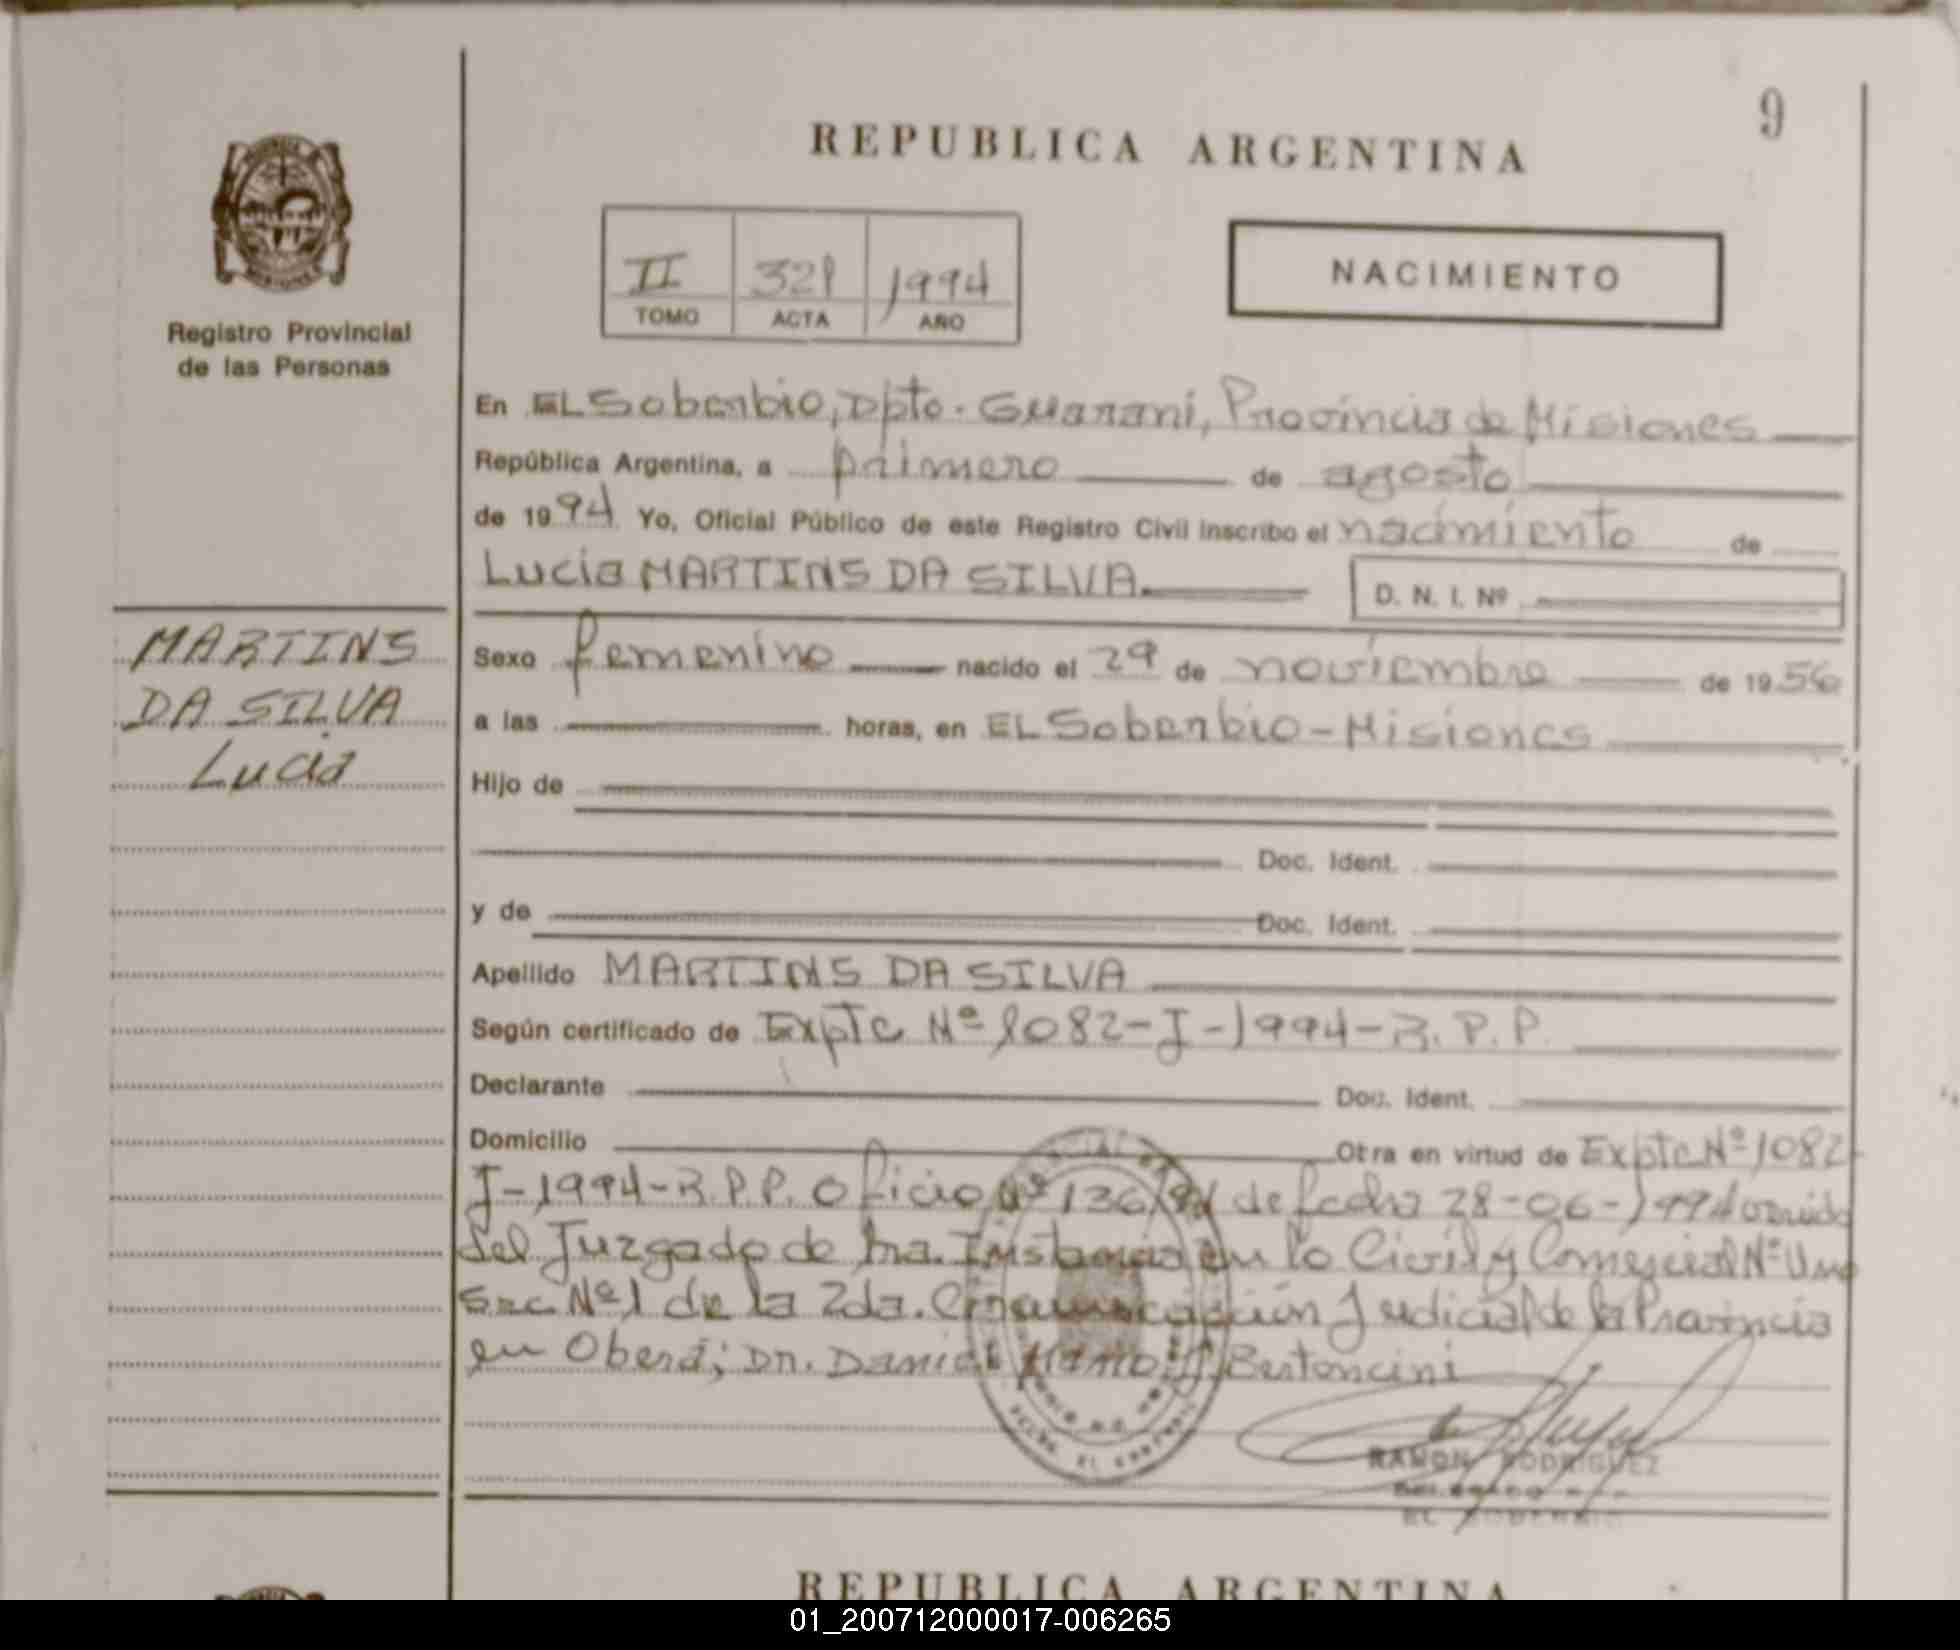 9
REPUBLICA ARGENTINA
II 321 1994
TOMO ACTA AÑO
NACIMIENTO
Registro Provincial
de las Personas
En EL Soberbio, Dpto. Guaraní, Provincia de Misiones
República Argentina, a primero de agosto
de 1994 Yo, Oficial Público de este Registro Civil inscribo el nacimiento de
Lucia MARTINS DA SILVA. D. N. I. Nº
MARTINS
DA SILVA
Lucia
Sexo femenino nacido el 29 de noviembre de 1956
a las horas, en EL Soberbio - Misiones
Hijo de
Doc. Ident.
y de Doc. Ident.
Apellido MARTINS DA SILVA
Según certificado de Expte Nº 1082-J-1994-R.P.P.
Declarante Doc. Ident.
Domicilio Otra en virtud de Expte Nº 1082-
J-1994-R.P.P. Oficio Nº 136/94 de fecha 28-06-1994
del Juzgado de 1ra. Instancia en lo Civil y Comercial Nº Uno
Sec Nº 1 de la 2da. Circunscripción Judicial de la Provincia
en Oberá; Dr. Daniel Bertoncini
RAMON RODRIGUEZ
EL SOBERBIO
REPUBLICA ARGENTINA
01_200712000017-006265